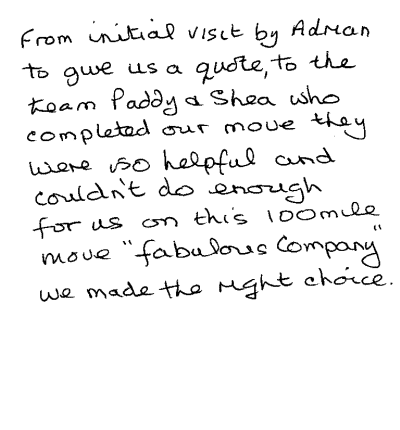 From initial visit by Adrian
to give us a quote, to the
team Paddy & Shea who
completed our move they
were so helpful and
couldn't do enough
for us on this 100 mile
move "fabulous Company"
we made the right choice.